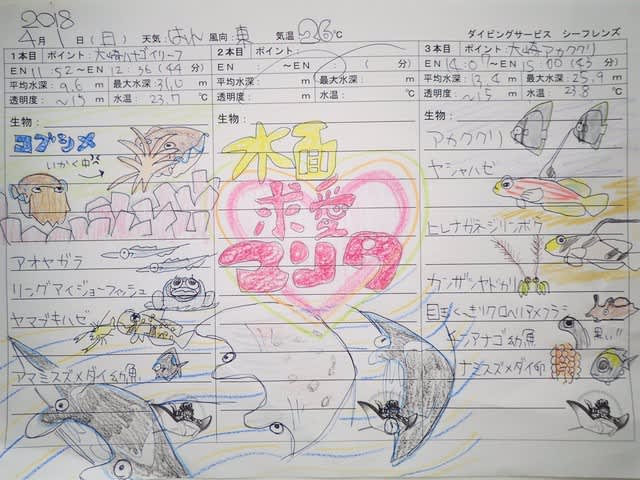 2018
4月 1日(日) 天気:はれ 風向:東 気温26℃
ダイビングサービス シーフレンズ
1本目 ポイント:大崎ハナゴイリーフ
EN 11:52～EN 12:36 (44分)
平均水深:9.6m 最大水深:31.0m
透明度:～15m 水温:23.7℃
生物:
コブシメ
いかく中
アオヤガラ
リングアイジョーフィッシュ
ヤマブキハゼ
アマミスズメダイ幼魚
2本目 ポイント:
EN : ～EN : ( 分)
平均水深: m 最大水深: m
透明度: m 水温: ℃
生物:
水面
求愛
マンタ
3本目 ポイント:大崎アカククリ
EN 14:07～EN 15:00 (45分)
平均水深:13.4m 最大水深:25.9m
透明度:～15m 水温:23.8℃
生物:
アカククリ
ヤシャハゼ
ヒレナガネジリンボウ
カンザシヤドカリ
目玉くっきりクロヘリアメフラシ
チンアナゴ幼魚
黒い!!
ナミスズメダイ卵